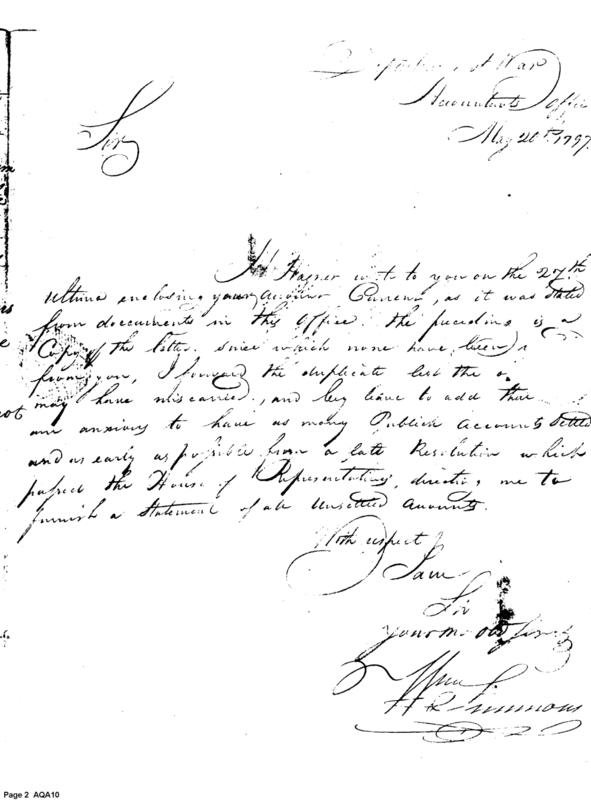 Department of War
Accountants Office
May 20th 1797.
Sir
Hagner wrote to you on the 27th
Ultimo enclosing your Account Current, as it was stated
from documents in this Office. the preceding is a
Copy of the letter. since which none have been
from you, I forward the duplicate lest the
may have miscarried, and beg leave to add that
am anxious to have as many Publick Accounts settled
and as early as possible from a late Resolution which
passed the House of Representatives, directing me to
furnish a Statement of all unsettled Accounts.
With respect
I am
Sir
your mo obt Serv
Wm Simmons
Page 2 AQA10